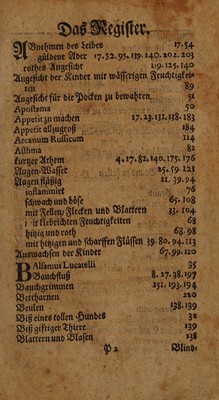 Das Register.
ABnehmen des Leibes 17. 54
güldene Ader 17. 52. 95. 139. 140. 202. 203
rothes Angesicht 119. 125. 140
Angesicht der Kinder mit wässerigen Fruchtigkei-
ten 89
Angesicht für die Pocken zu bewahren 51
Apostema 50
Appetit zu machen 17. 23. 131. 138. 183
Appetit allzugroß 184
Arcanum Russicum 114
Asthma 82
kurtzer Athem 4. 17. 82. 140. 175. 176
Augen-Wasser 25. 59. 121
Augen flüßig 21. 39. 94
inflammirt 76
schwach und böse 65. 108
mit Fellen Flecken und Blattern 13. 104
mit klebrichten Feuchtigkeiten 68
hitzig und roth 68. 98
mit hitzigen und scharffen Flüssen 39. 80. 94. 113
Auswachsen der Kinder 67. 99. 120
BAlsamus Lucatelli 35
Bauchfluß 8. 27. 38. 197
Bauchgrimmen 151. 193. 194
Bettharnen 220
Beulen 138. 139
Biß eines tollen Hundes 32
Biß gifftiger Thiere 139
Blattern und Blasen 138
P 2 Blind-